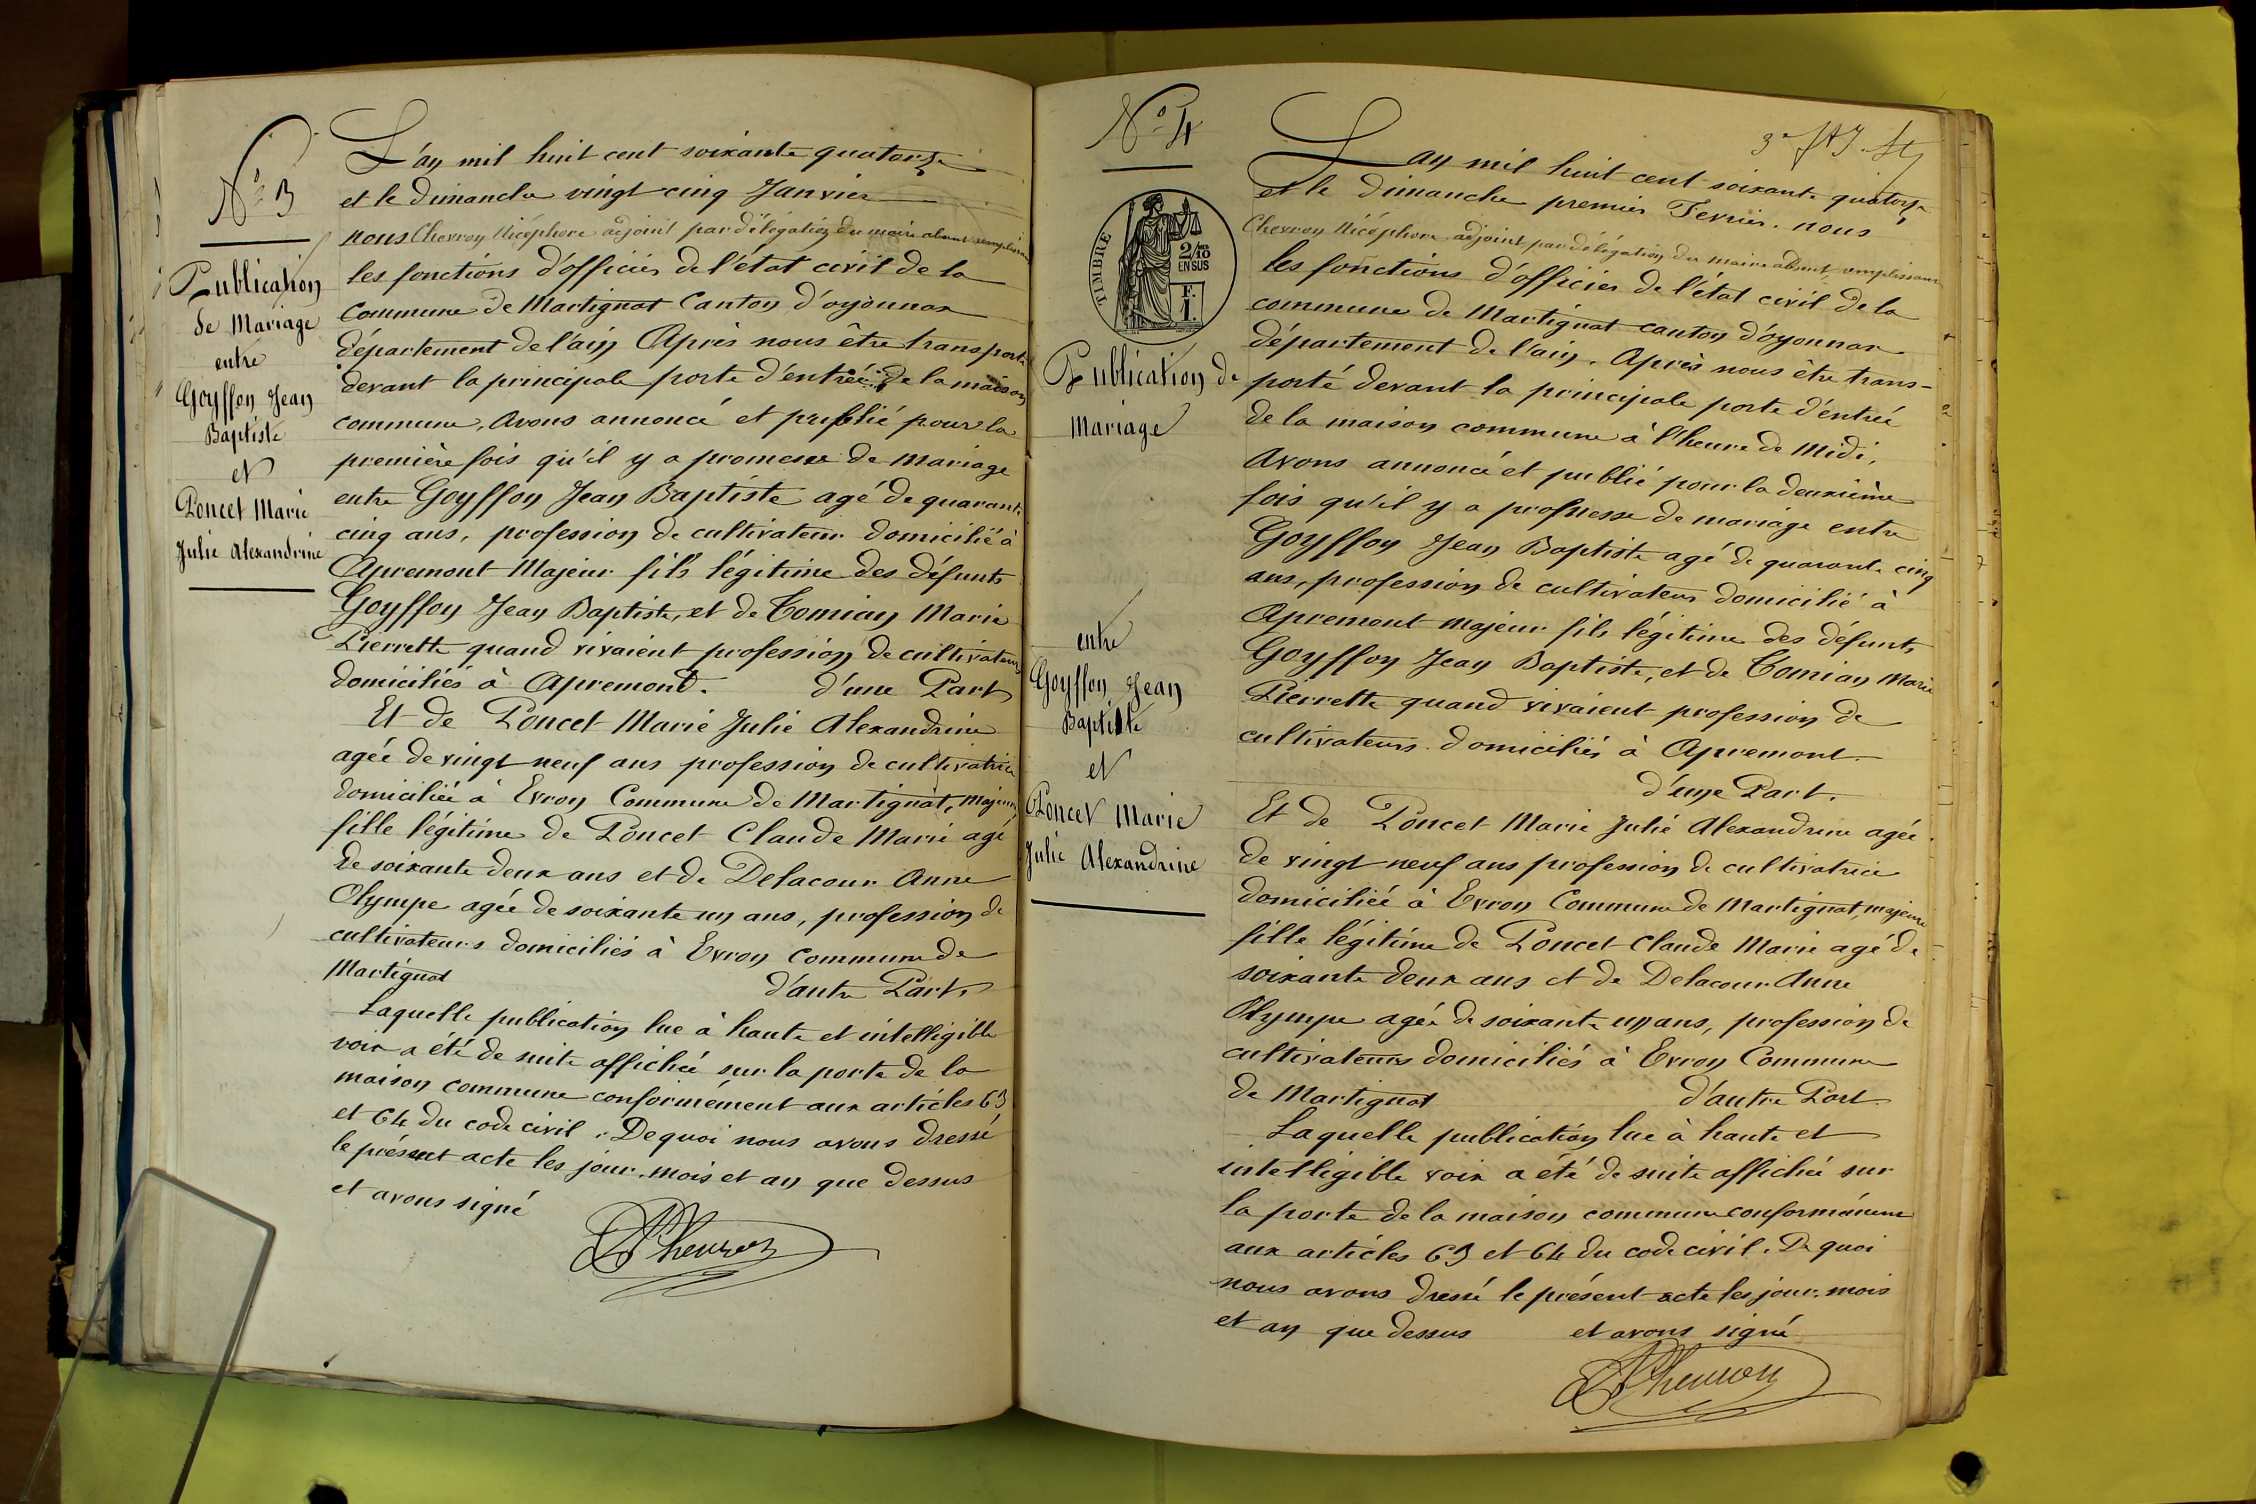 N° 3
Publication
de Mariage
entre
Goyffon Jean
Baptiste
et
Poncet Marie
Julie Alexandrine
L'an mil huit cent soixante quatorze
et le dimanche vingt cinq Janvier
nous Chevron Nicéphore adjoint par délégation du maire absent remplissant
les fonctions d'officier de l'état civil de la
Commune de Martignat Canton d'oyonnax
département de l'ain Après nous être transporté
devant la principale porte d'entrée de la maison
commune, avons annoncé et publié pour la
première fois qu'il y a promesse de mariage
entre Goyffon Jean Baptiste agé de quarante
cinq ans, profession de cultivateur domicilié à
Apremont Majeur fils légitime des défunts
Goyffon Jean Baptiste, et de Tomian Marie
Pierrette quand vivaient profession de cultivateurs
domiciliés à Apremont. d'une Part
Et de Poncet Marie Julie Alexandrine
agée de vingt neuf ans profession de cultivatrice
domiciliée à Evron Commune de Martignat, majeure
fille légitime de Poncet Claude Marie agé
de soixante deux ans et de Delacour Anne
Olympe agée de soixante un ans, profession de
cultivateurs domiciliés à Evron Commune de
Martignat d'autre Part.
Laquelle publication lue à haute et intelligible
voix a été de suite affichée sur la porte de la
maison commune conformément aux articles 63
et 64 du code civil. De quoi nous avons dressé
le présent acte les jour, mois et an que dessus
et avons signé
Chevron
N° 4
TIMBRE
2/10
EN SUS
Publication de
Mariage
entre
Goyffon Jean
Baptiste
et
Poncet Marie
Julie Alexandrine
L'an mil huit cent soixante quatorze
et le dimanche premier Fevrier. nous
Chevron Nicéphore adjoint par délégation du maire absent, remplissant
les fonctions d'officier de l'état civil de la
commune de Martignat canton d'oyonnax
département de l'ain. Après nous être trans-
porté devant la principale porte d'entrée
de la maison commune à l'heure de Midi,
Avons annoncé et publié pour la deuxième
fois qu'il y a promesse de mariage entre
Goyffon Jean Baptiste agé de quarante cinq
ans, profession de cultivateur domicilié à
Apremont majeur fils légitime des défunts
Goyffon Jean Baptiste, et de Tomian Marie
Pierrette quand vivaient profession de
cultivateurs domiciliés à Apremont
d'une Part.
Et de Poncet Marie Julie Alexandrine agée
de vingt neuf ans profession de cultivatrice
domiciliée à Evron Commune de Martignat, majeure
fille légitime de Poncet Claude Marie agé de
soixante deux ans et de Delacour Anne
Olympe agée de soixante un ans, profession de
cultivateurs domiciliés à Evron Commune
de Martignat d'autre Part.
Laquelle publication lue à haute et
intelligible voix a été de suite affichée sur
la porte de la maison commune conformément
aux articles 63 et 64 du code civil. De quoi
nous avons dressé le présent acte les jour, mois
et an que dessus et avons signé
Chevron